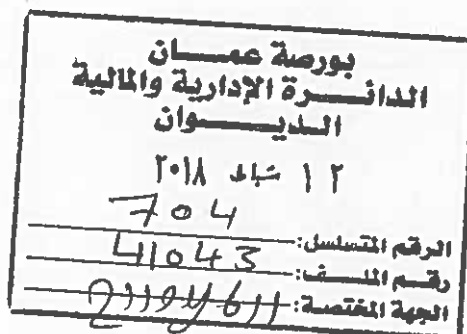 بورصة عمــان
الدائــــرة الإدارية والمالية
الديـــــوان
١٢ شباط ٢٠١٨
الرقم المتسلسل: 704
رقم الملــف: 41043
الجهة المختصة: